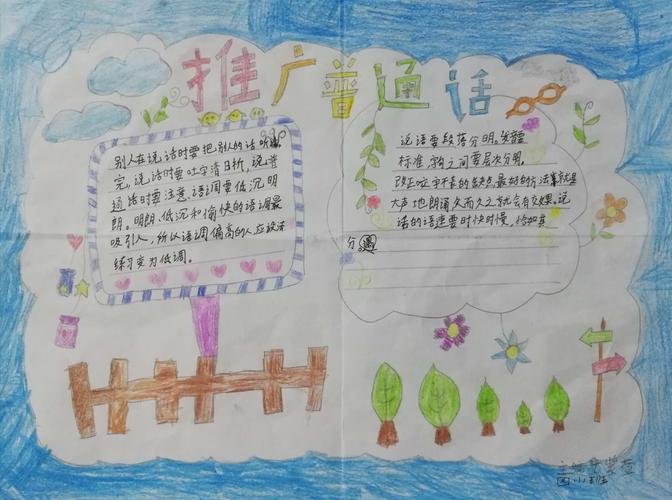 推广普通话
别人在说话时要把别人的话听
完。说话时要吐字清日析，说普
通话时要注意、语调要低沉明
朗。明朗、低沉和愉快的语调最
吸引人，所以语调偏高的人应设法
练习变为低调。
说话要段落分明。发音
标准，句之间要层次分明。
改正咬字不准的缺点，最好的方法就是
大声地朗诵久而久之就会有效果。说
话的语速要时快时慢，恰如其
分
四小班